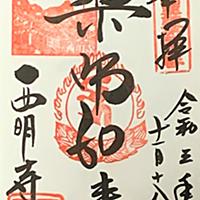 奉拝
令和三年
十一月十八
薬師如来
西明寺